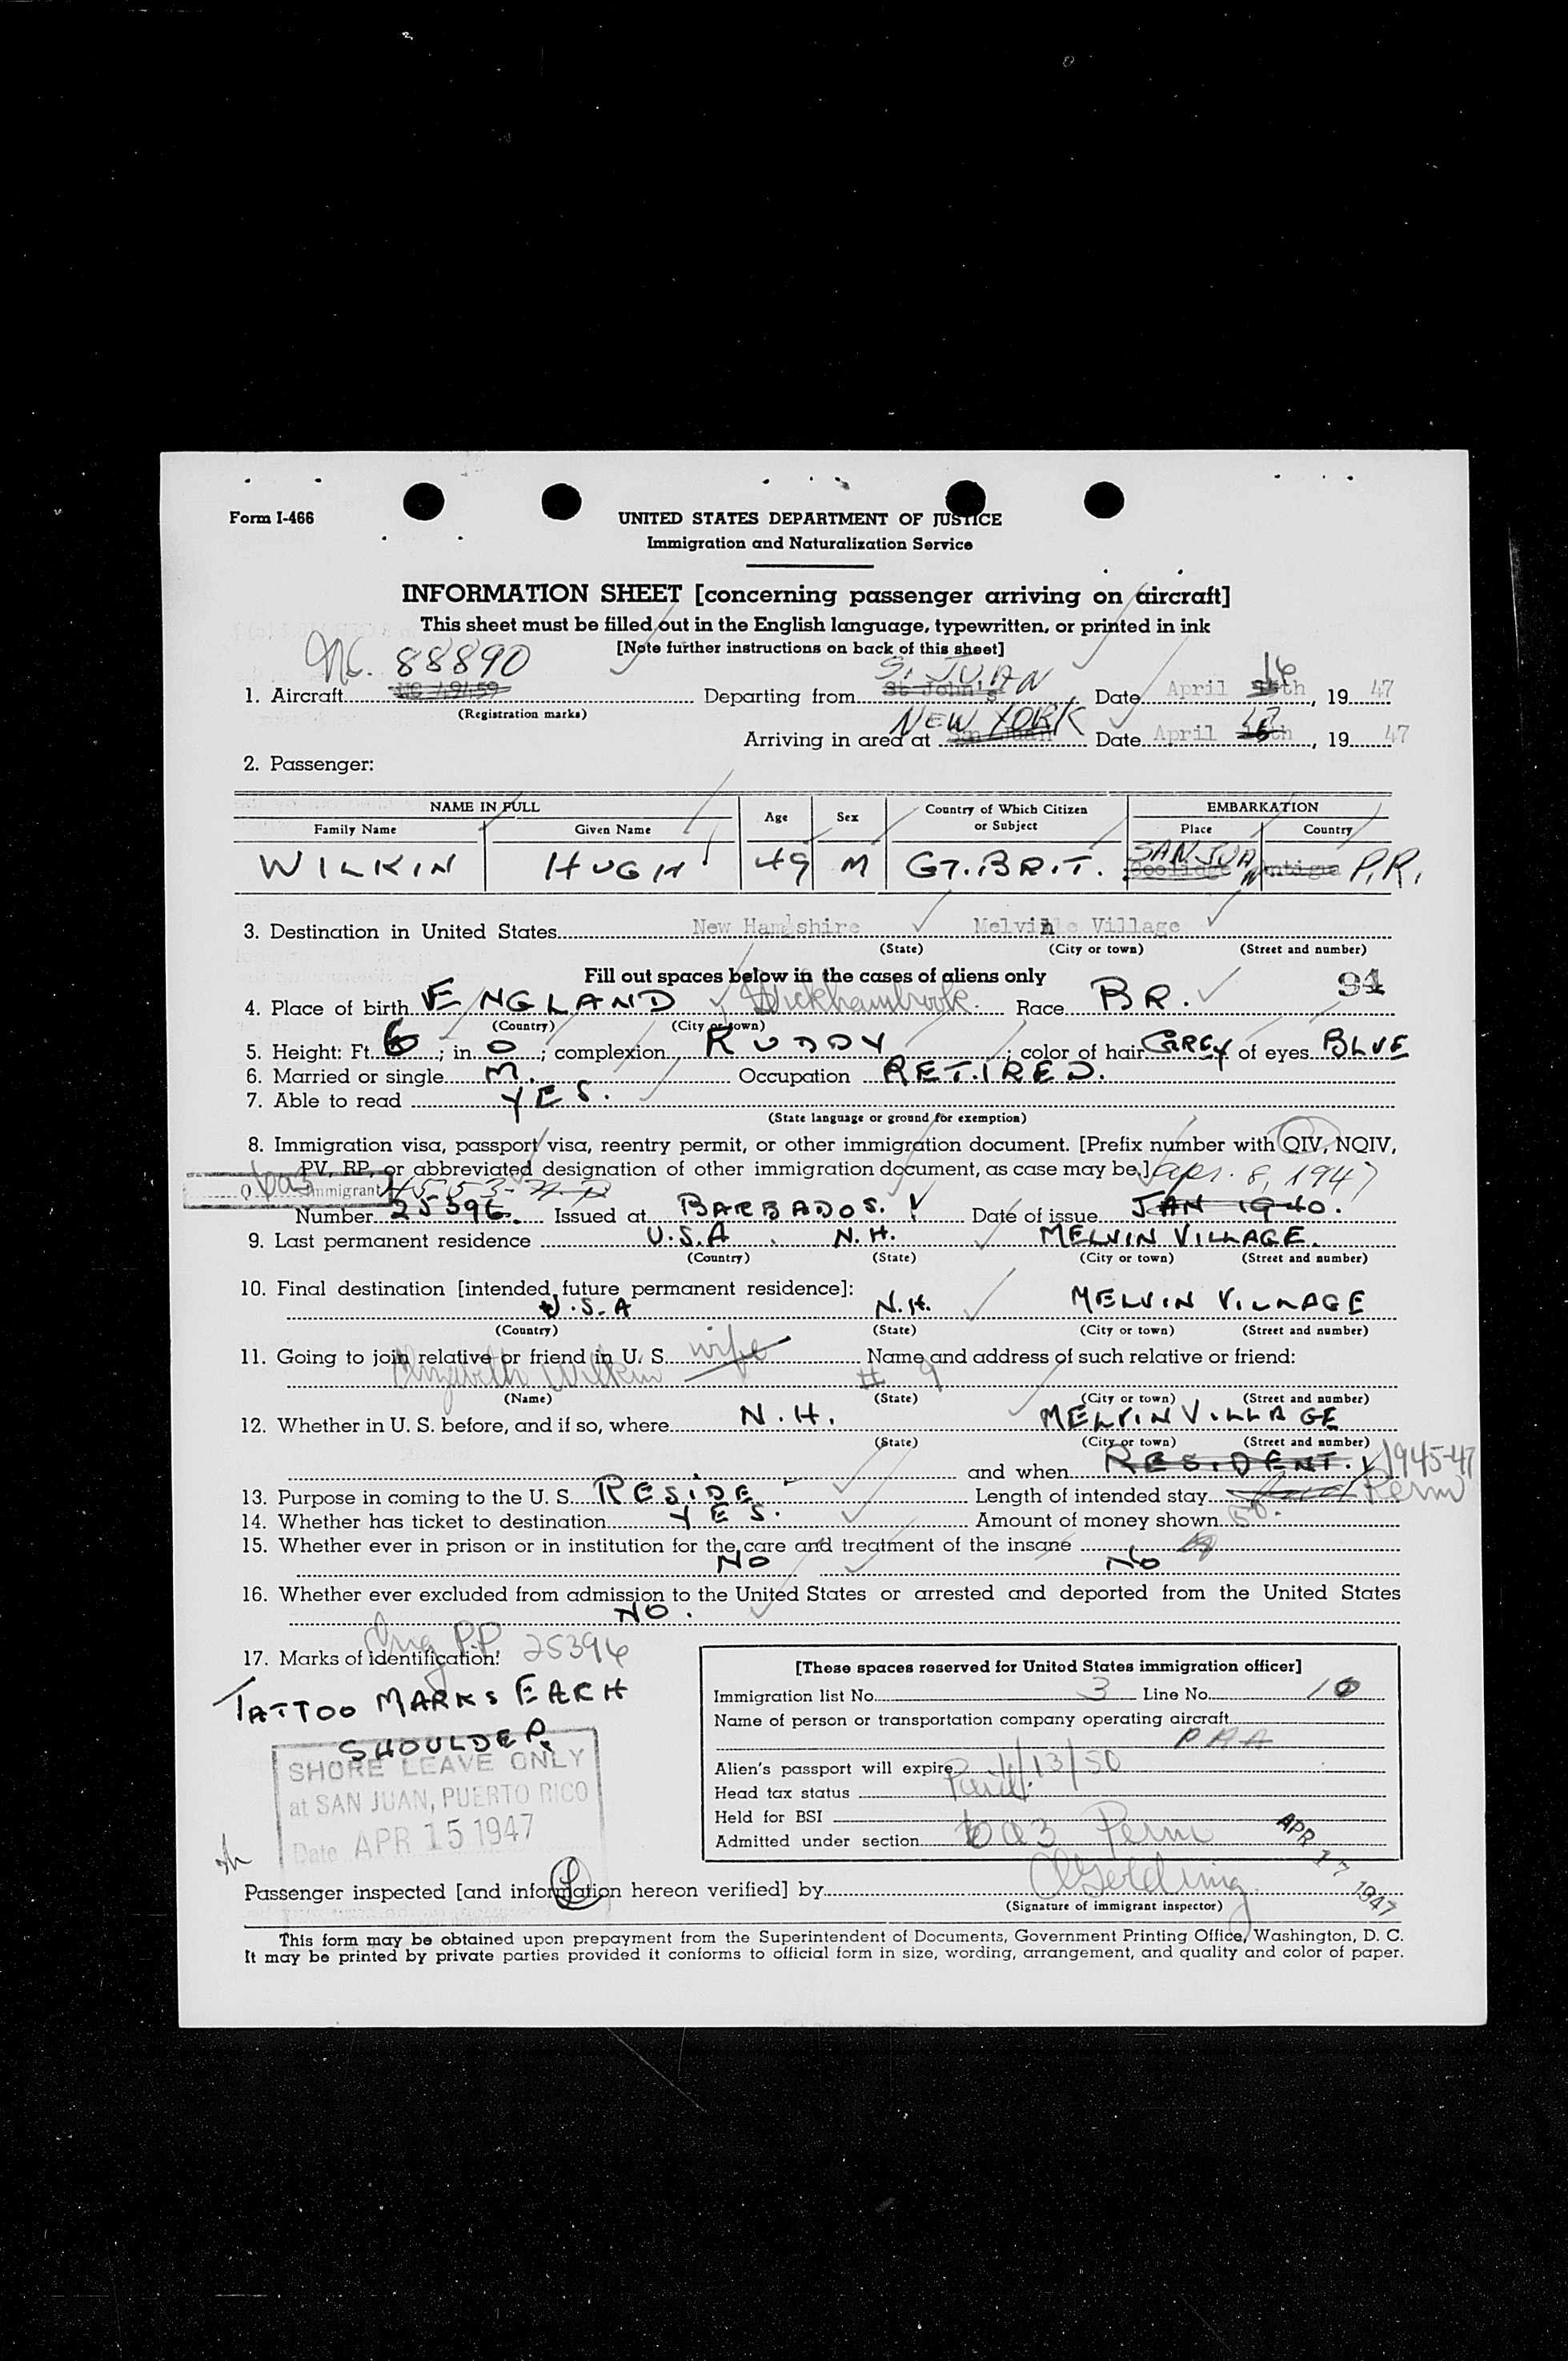 Form I-466
UNITED STATES DEPARTMENT OF JUSTICE
Immigration and Naturalization Service
INFORMATION SHEET [concerning passenger arriving on aircraft]
This sheet must be filled out in the English language, typewritten, or printed in ink
[Note further instructions on back of this sheet]
NC. 88890 S. JUAN 16
1. Aircraft NC 49459 Departing from St John's Date April 15th, 19 47
(Registration marks) NEW YORK 17
Arriving in area at San Juan Date April 15th, 19 47
2. Passenger:
NAME IN FULL Age Sex Country of Which Citizen or Subject EMBARKATION
Family Name Given Name Place Country
WILKIN HUGH 49 M GT. BRIT. SAN JUAN P.R.
Coolidge Antigua
3. Destination in United States New Hampshire Melvin Village
(State) (City or town) (Street and number)
Fill out spaces below in the cases of aliens only 94
4. Place of birth ENGLAND Wickhambrook Race BR.
(Country) (City or town)
5. Height: Ft. 6; in. 0; complexion RUDDY; color of hair GREY of eyes BLUE
6. Married or single M. Occupation RETIRED.
7. Able to read YES.
(State language or ground for exemption)
8. Immigration visa, passport visa, reentry permit, or other immigration document. [Prefix number with QIV, NQIV,
PV, RP, or abbreviated designation of other immigration document, as case may be.] Apr. 8, 1947
Immigrant
Number 25396. Issued at BARBADOS. Date of issue JAN 1940.
9. Last permanent residence U.S.A. N.H. MELVIN VILLAGE.
(Country) (State) (City or town) (Street and number)
10. Final destination [intended future permanent residence]:
U.S.A N.H. MELVIN VILLAGE
(Country) (State) (City or town) (Street and number)
11. Going to join relative or friend in U. S. wife Name and address of such relative or friend:
Elizabeth Wilkin # 9
(Name) (State) (City or town) (Street and number)
12. Whether in U. S. before, and if so, where N.H. MELVIN VILLAGE
(State) (City or town) (Street and number)
and when RESIDENT. 1945-47
13. Purpose in coming to the U. S. RESIDE Length of intended stay Perm
14. Whether has ticket to destination YES. Amount of money shown 50.
15. Whether ever in prison or in institution for the care and treatment of the insane
NO NO
16. Whether ever excluded from admission to the United States or arrested and deported from the United States
NO.
17. Marks of identification: PP 25396
TATTOO MARKS EACH
SHOULDER.
SHORE LEAVE ONLY
at SAN JUAN, PUERTO RICO
Date APR 15 1947
[These spaces reserved for United States immigration officer]
Immigration list No. 3 Line No. 10
Name of person or transportation company operating aircraft
PAA
Alien's passport will expire 1/13/50
Head tax status Paid.
Held for BSI
Admitted under section 6a3 Perm
APR 17 1947
Passenger inspected [and information hereon verified] by
(Signature of immigrant inspector)
This form may be obtained upon prepayment from the Superintendent of Documents, Government Printing Office, Washington, D. C.
It may be printed by private parties provided it conforms to official form in size, wording, arrangement, and quality and color of paper.